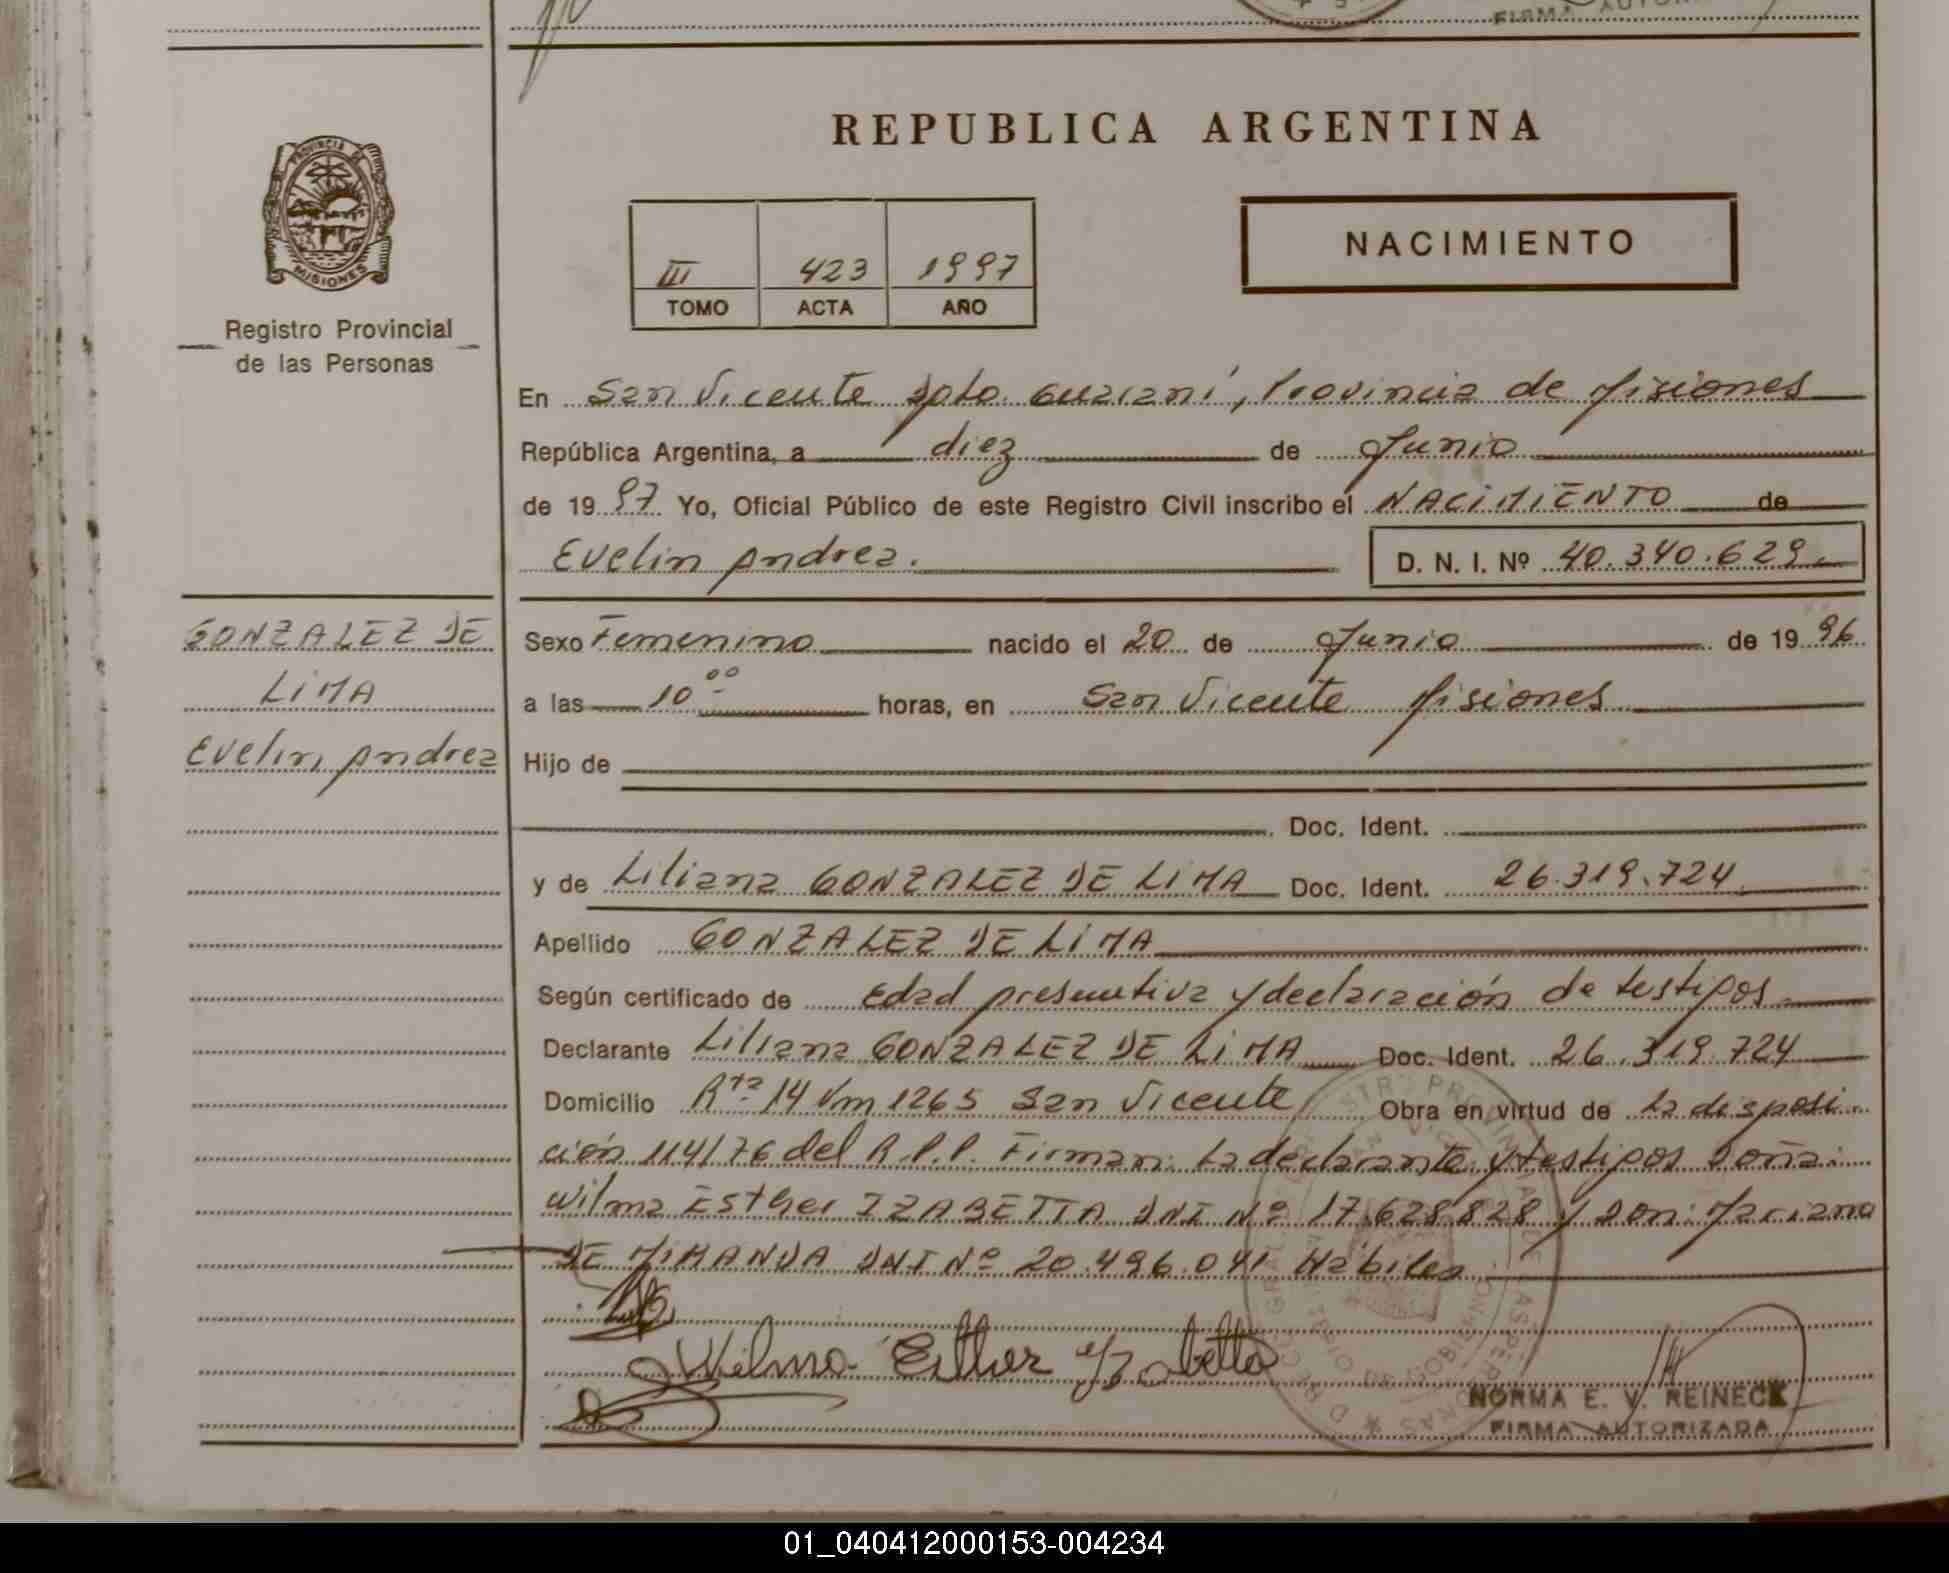 FIRMA AUTORI
REPUBLICA ARGENTINA
PROVINCIA DE
MISIONES
Registro Provincial
de las Personas
III 423 1997
TOMO ACTA AÑO
NACIMIENTO
En San Vicente Dpto. Guaraní, Provincia de Misiones
República Argentina, a diez de Junio
de 1997 Yo, Oficial Público de este Registro Civil inscribo el NACIMIENTO de
Evelin Andrea. D. N. I. Nº 40.340.629
GONZALEZ DE
LIMA
Evelin Andrea
Sexo Femenino nacido el 20 de Junio de 1996
a las 10 00 horas, en San Vicente Misiones
Hijo de
Doc. Ident.
y de Liliana GONZALEZ DE LIMA Doc. Ident. 26.319.724
Apellido GONZALEZ DE LIMA
Según certificado de Edad presuntiva y declaración de testigos
Declarante Liliana GONZALEZ DE LIMA Doc. Ident. 26.319.724
Domicilio Rta 14 Km 1265 San Vicente Obra en virtud de La disposi
ción 114/76 del R.P.P. Firman: La declarante y testigos Doña:
Wilma Esther IZABETTA DNI Nº 17.628.828 y Don: Mariano
DE MIRANDA DNI Nº 20.496.041 Hábiles
Wilma Esther Yzabetta
NORMA E. V. REINECK
FIRMA AUTORIZADA
01_040412000153-004234